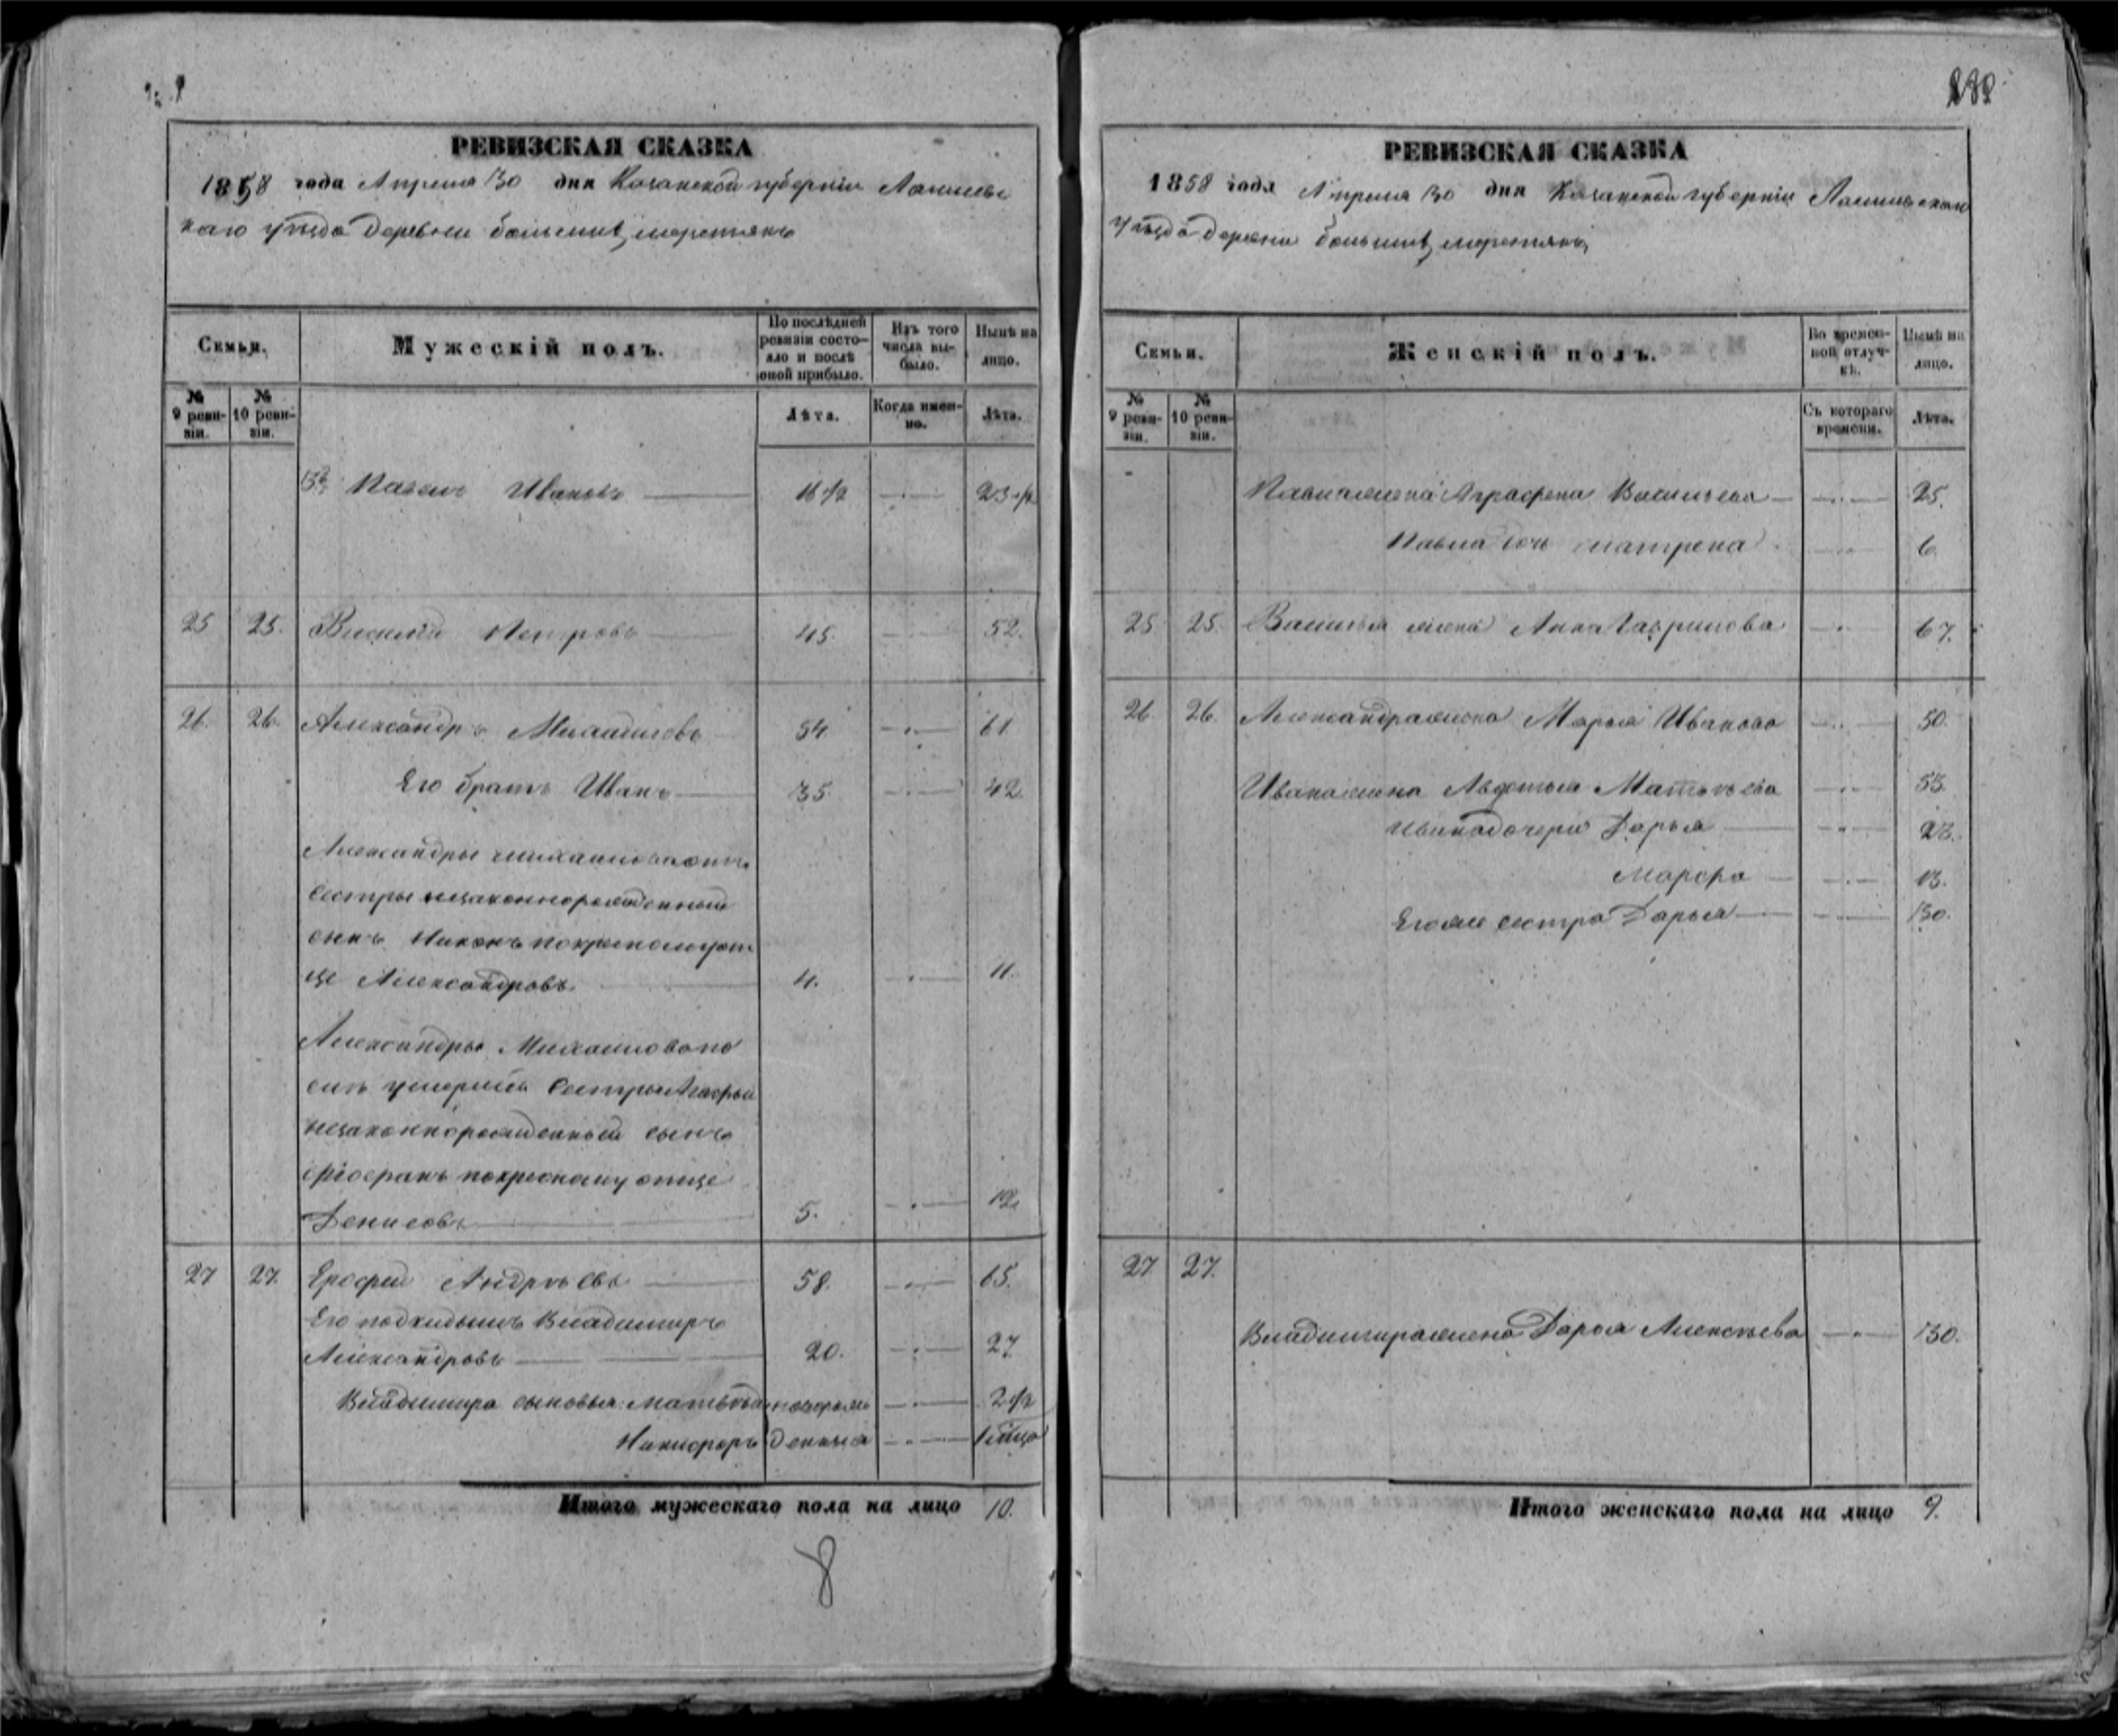 РЕВИЗСКАЯ СКАЗКА
1858 года Апреля 30 дня Казанской губерніи Лаишевс
каго уѣзда деревни большихъ
Семьи.
Мужескій полъ.
По послѣдней ревизіи состояло и послѣ оной прибыло.
Изъ того числа выбыло.
Нынѣ на лицо.
№ 9 ревизіи.
№ 10 ревизіи.
Лѣта.
Когда именно.
Лѣта.
Павелъ Ивановъ 16 1/2 23 1/2
25 25. Василий Петровъ 45. 52.
26. 26. Александръ Михайловъ 54 61
Его братъ Иванъ 35. 42.
Александры Михайлова
сестры незаконнорожденный
сынъ Никонъ по крестному от
це Александровъ. 4. 11.
Александры Михайлова по
сестры
незаконнорожденный сынъ
по кресному отце
Денисовъ 5. 12.
27 27. Ерофей Андрѣевъ 58. 65.
Его подкидышъ Владимиръ
Александровъ 20. 27
Владимира сыновья: Матвѣй 2 1/2
Никифоръ
Итого мужескаго пола на лицо 10.
8
РЕВИЗСКАЯ СКАЗКА
1858 года Апреля 30 дня Казанской губерніи Лаишевскаго
уѣзда деревни большихъ
Семьи.
Женскій полъ.
Во временной отлучкѣ.
Нынѣ на лицо.
№ 9 ревизіи.
№ 10 ревизіи.
Съ котораго времени.
Лѣта.
Павла жена Аграфена Васильева 25.
Павла дочь Матрена 6.
25 25. Василья жена Анна Гаврилова 67.
26 26. Александра жена Марья Иванова 50.
Ивана жена Авдотья Матвѣева 53.
Ивана дочери Дарья 23.
Марфа 13.
Его же сестра Дарья 30.
27 27.
Владимира жена Дарья Алексѣева 30.
Итого женскаго пола на лицо 9.